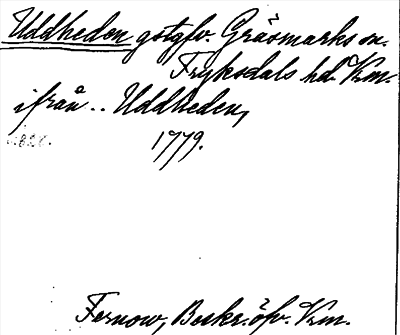 Uddheden gstgfv. Gräsmarks sn.
Fryksdals hd. Vrm.
ifrån .. Uddheden,
1779.
Fernow, Beskr. öfv. Vrm.